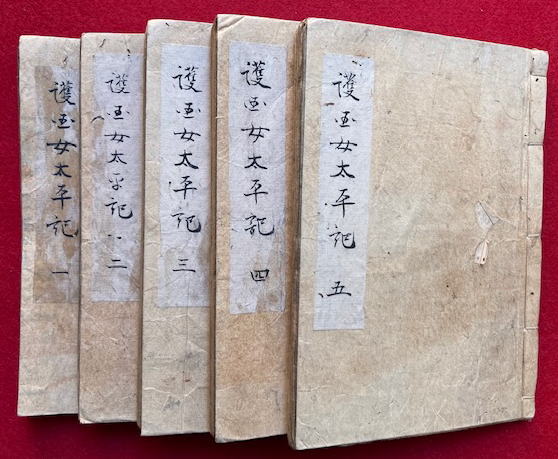 護国女太平記 一
護国女太平記 二
護国女太平記 三
護国女太平記 四
護国女太平記 五